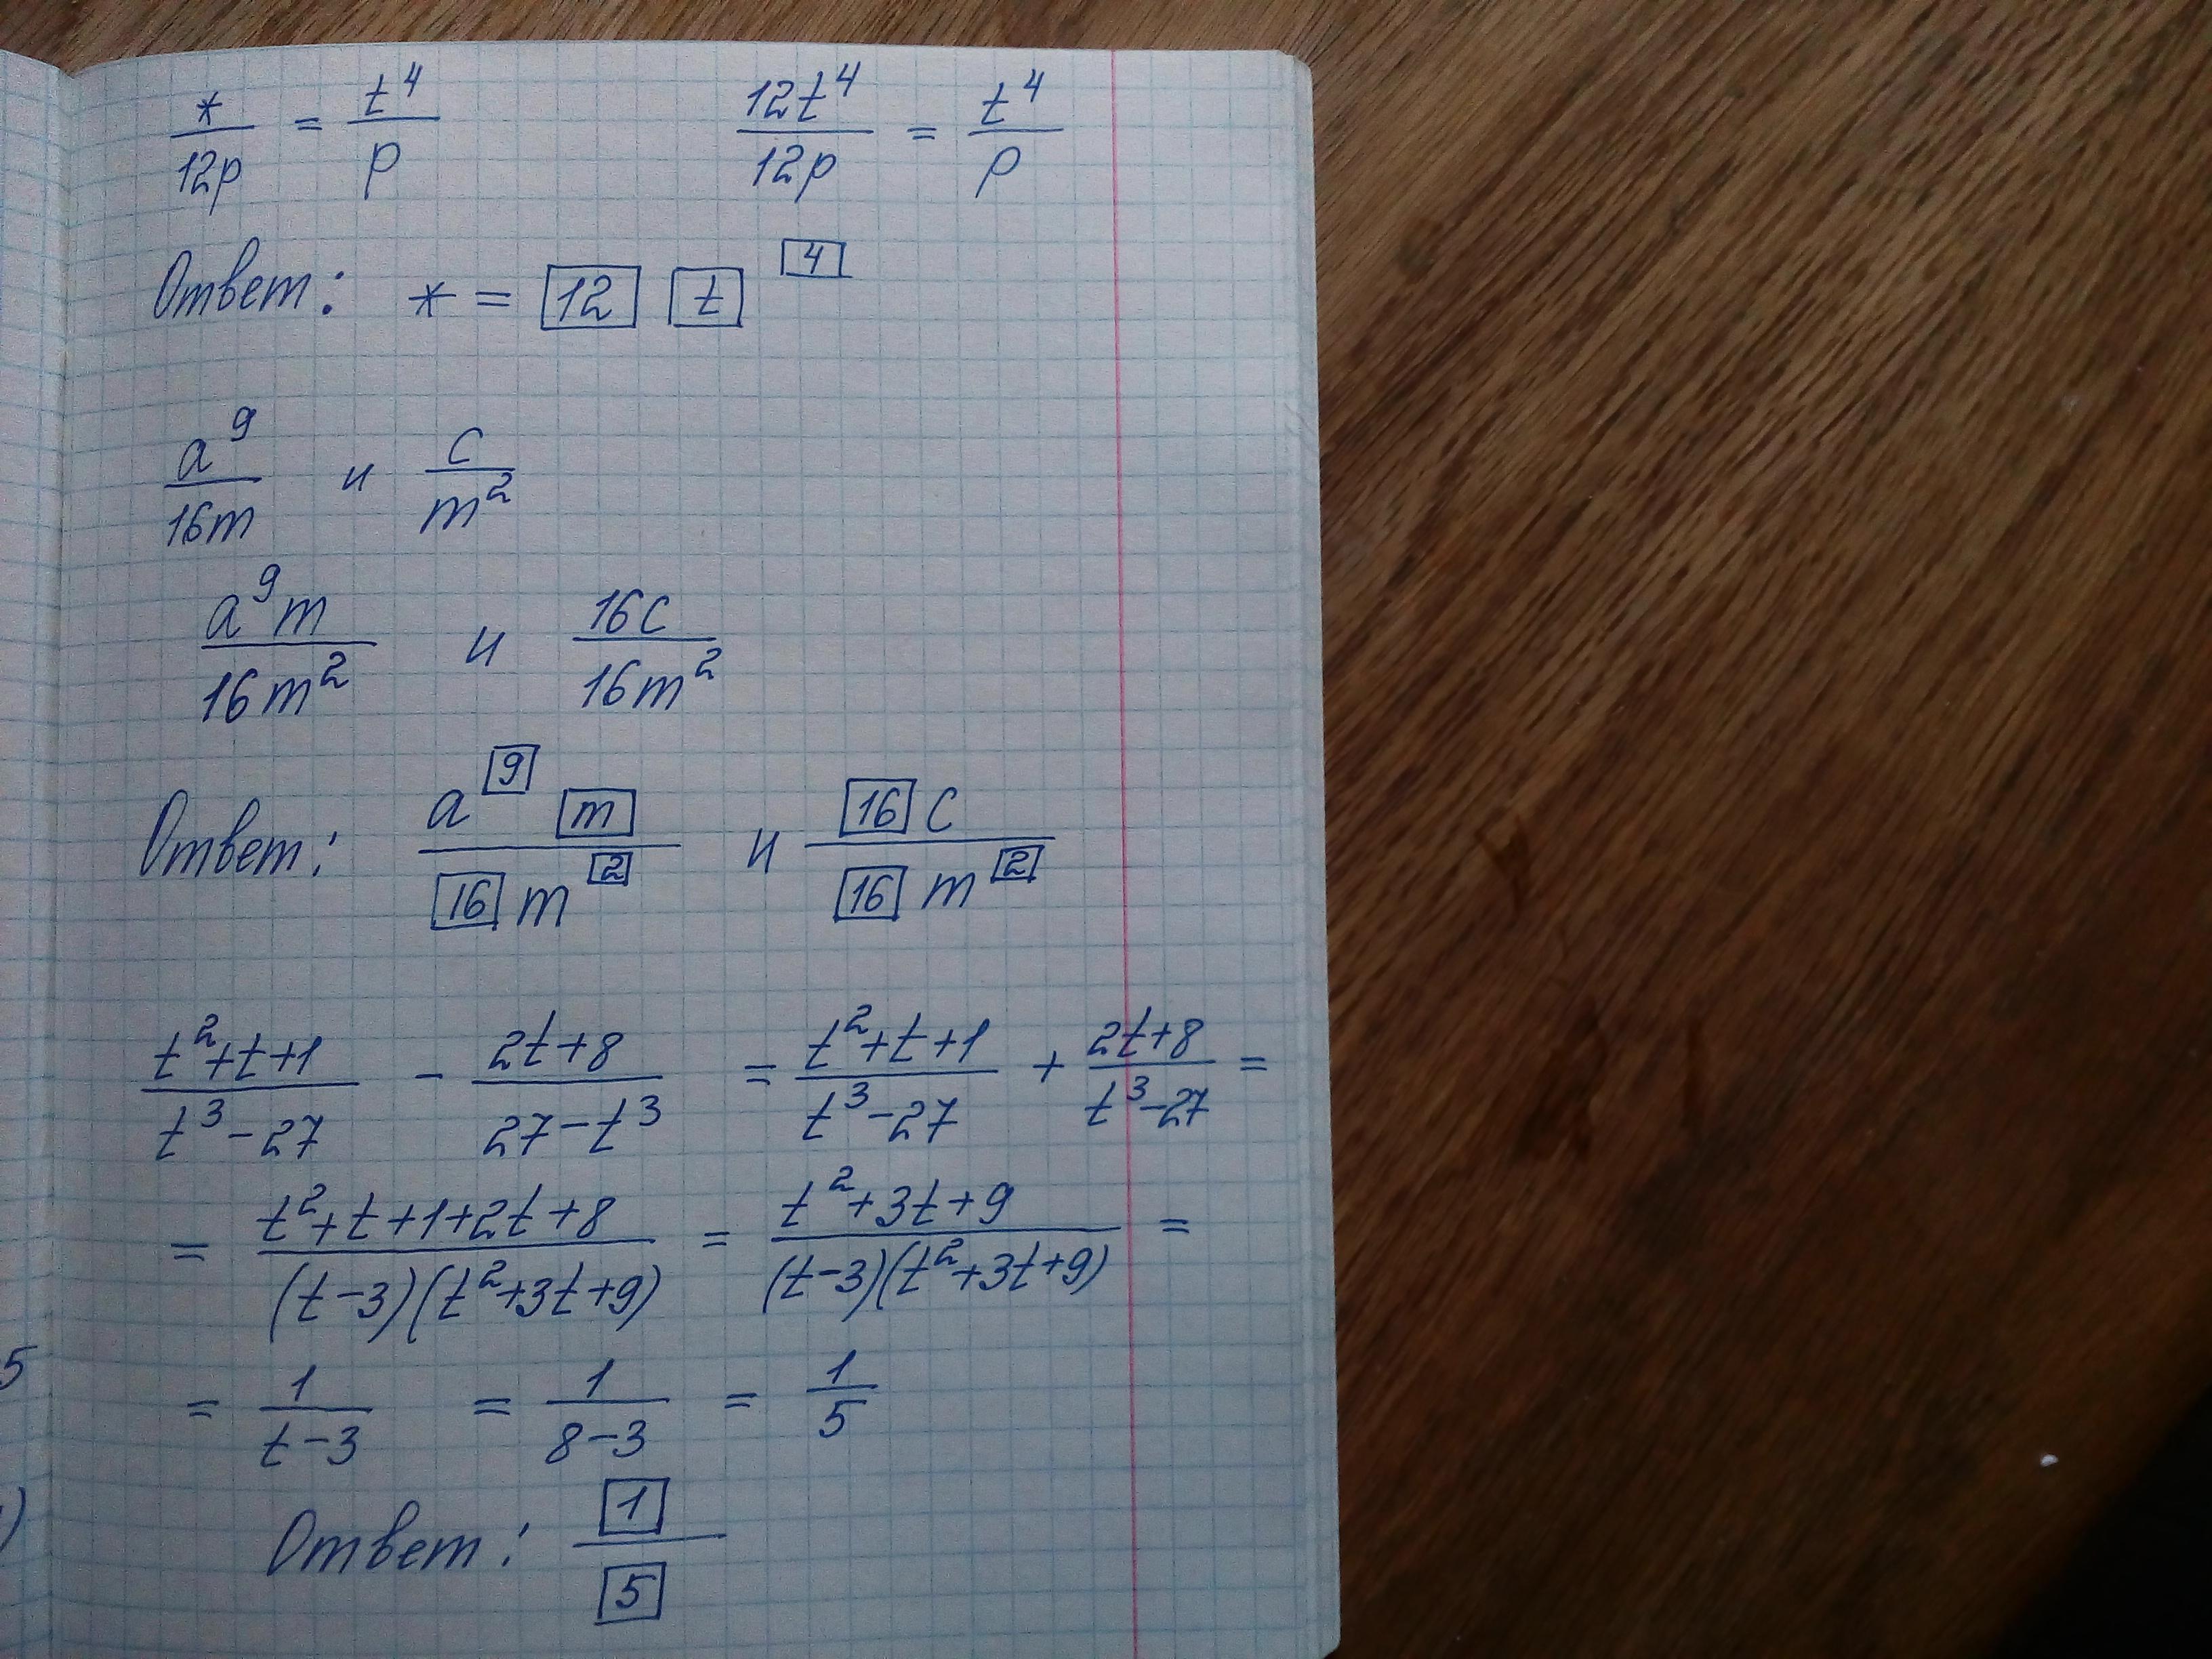 */12p = t⁴/p    12t⁴/12p = t⁴/p
Ответ: * = 12 t ⁴
a⁹/16m и c/m²
a⁹m/16m² и 16c/16m²
Ответ: a⁹ m/16 m² и 16 c/16 m²
(t²+t+1)/(t³-27) - (2t+8)/(27-t³) = (t²+t+1)/(t³-27) + (2t+8)/(t³-27) =
= (t²+t+1+2t+8)/((t-3)(t²+3t+9)) = (t²+3t+9)/((t-3)(t²+3t+9)) =
5
= 1/(t-3) = 1/(8-3) = 1/5
)
Ответ: 1/5